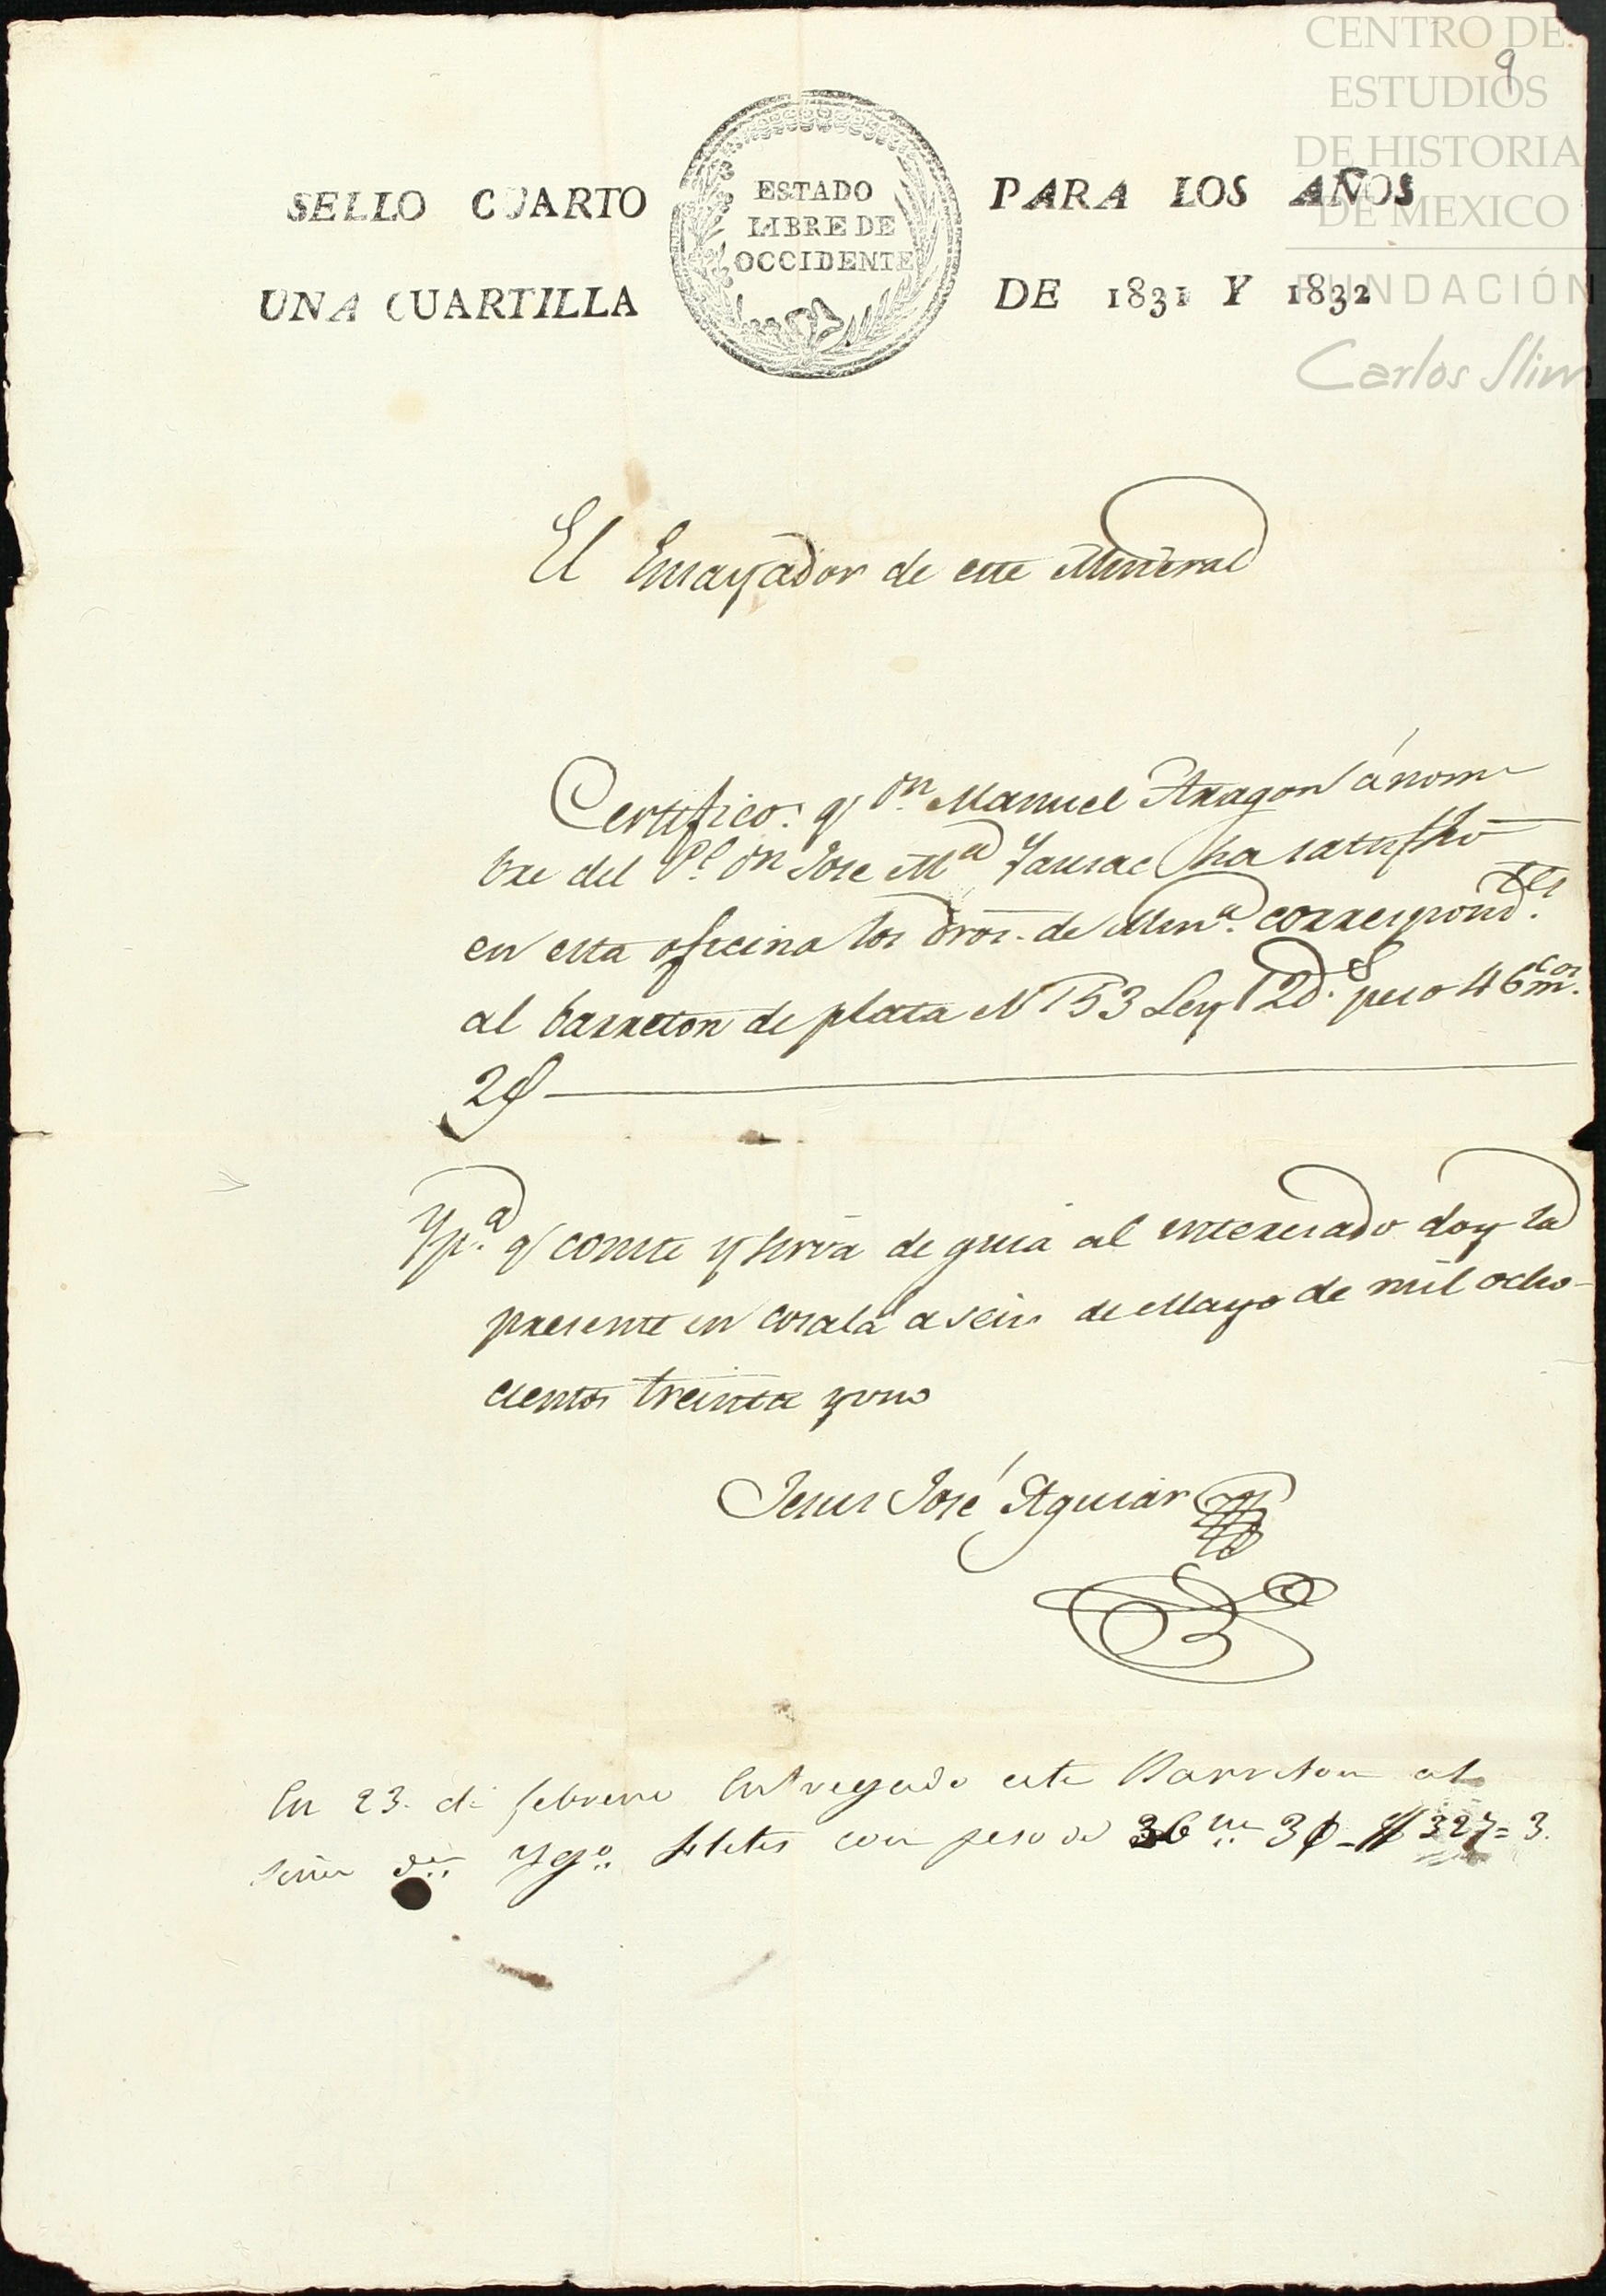 CENTRO DE
ESTUDIOS
DE HISTORIA
DE MEXICO
FUNDACIÓN
Carlos Slim
9
SELLO CUARTO
UNA CUARTILLA
ESTADO
LIBRE DE
OCCIDENTE
PARA LOS AÑOS
DE 1831 Y 1832
El Ensayador de este Mineral
Certifico: q.e Dn. Manuel Aragon á nom
bre del Sr. Dn Jose Ma. ha satisfho
en esta oficina los dros. de Min.a correspond.tes
al barreton de plata N 153 Ley 12d.s peso 46 m.cos
2
Y p.a q.e conste y sirva de guia al interesado doy la
presente en Cosalá a seis de Mayo de mil ocho-
cientos treinta y uno
Jesus José Aguiar
En 23. de febrero Entregado este Barreton al
Señor dn. Ygo. con peso de 36 ms. 3 $327=3.